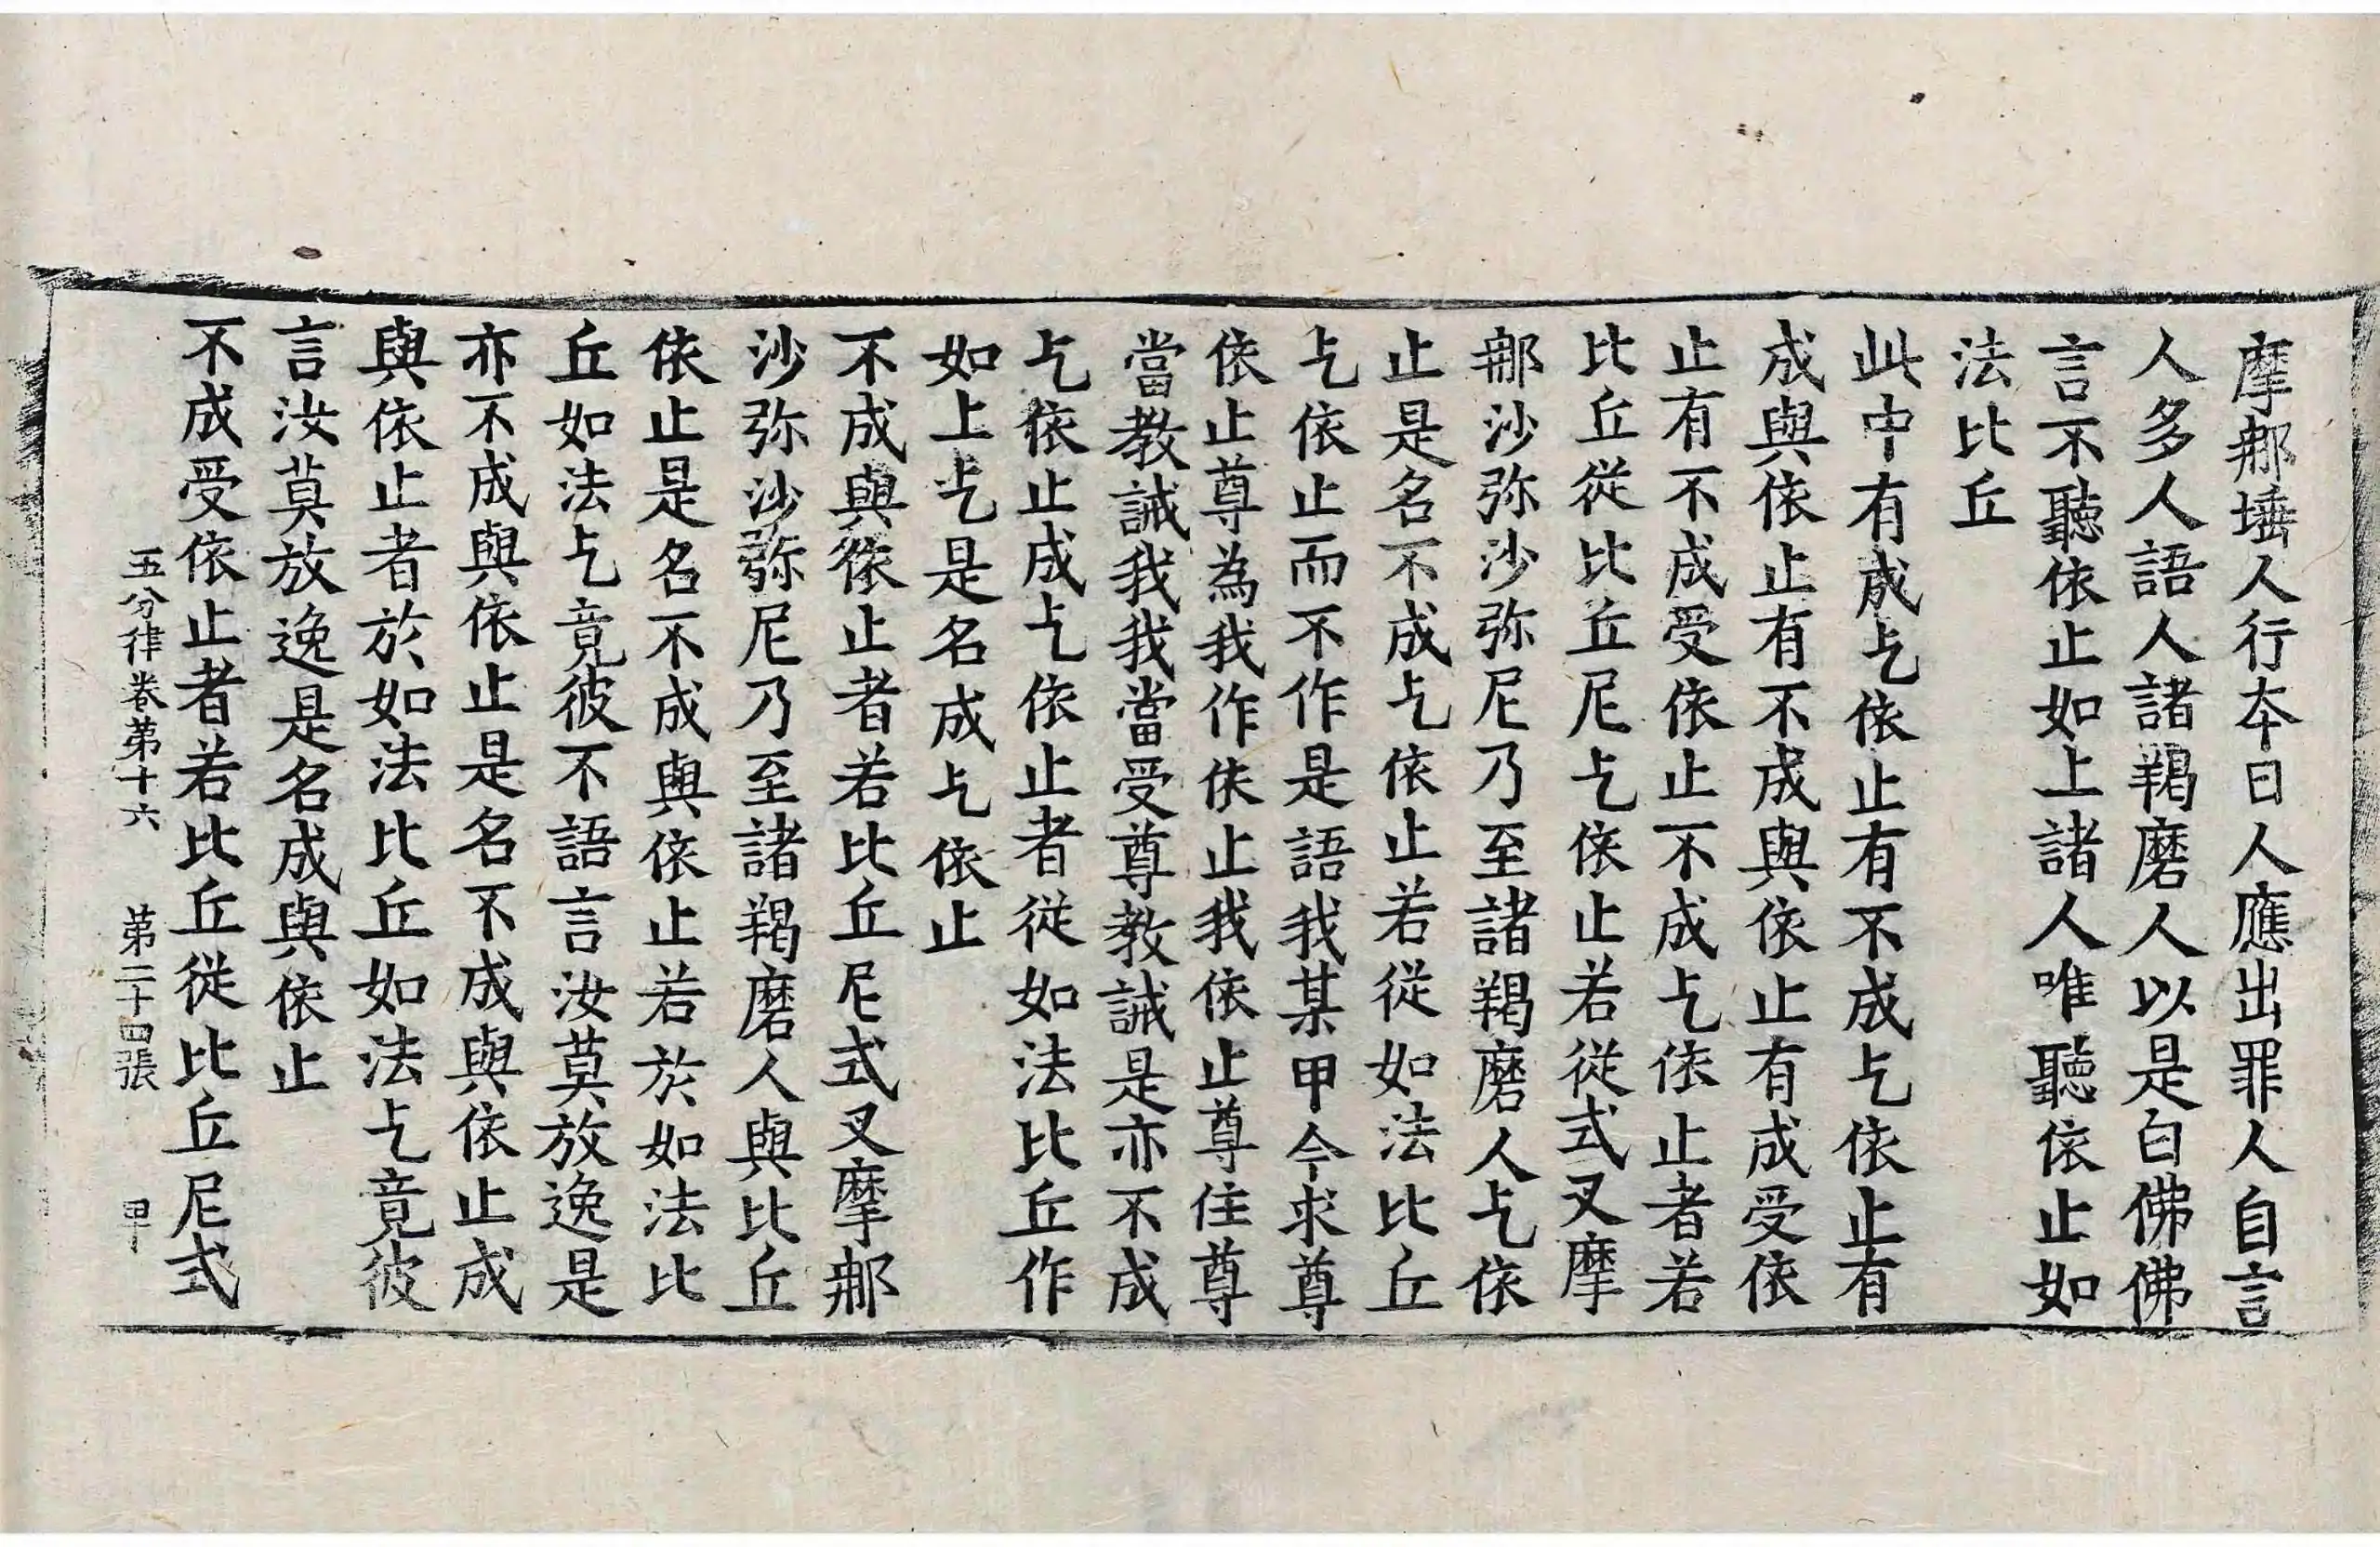 摩那埵人行本日人應出罪人自言
人多人語人諸羯磨人以是白佛佛
言不聽依止如上諸人唯聽依止如
法比丘
此中有成乞依止有不成乞依止有
成與依止有不成與依止有成受依
止有不成受依止不成乞依止者若
比丘從比丘尼乞依止若從式叉摩
那沙弥沙弥尼乃至諸羯磨人乞依
止是名不成乞依止若從如法比丘
乞依止而不作是語我某甲今求尊
依止尊為我作依止我依止尊住尊
當教誡我我當受尊教誡是亦不成
乞依止成乞依止者從如法比丘作
如上乞是名成乞依止
不成與依止者若比丘尼式叉摩那
沙弥沙弥尼乃至諸羯磨人與比丘
依止是名不成與依止若於如法比
丘如法乞竟彼不語言汝莫放逸是
亦不成與依止是名不成與依止成
與依止者於如法比丘如法乞竟彼
言汝莫放逸是名成與依止
不成受依止者若比丘從比丘尼式
五分律卷第十六 第二十四張 甲